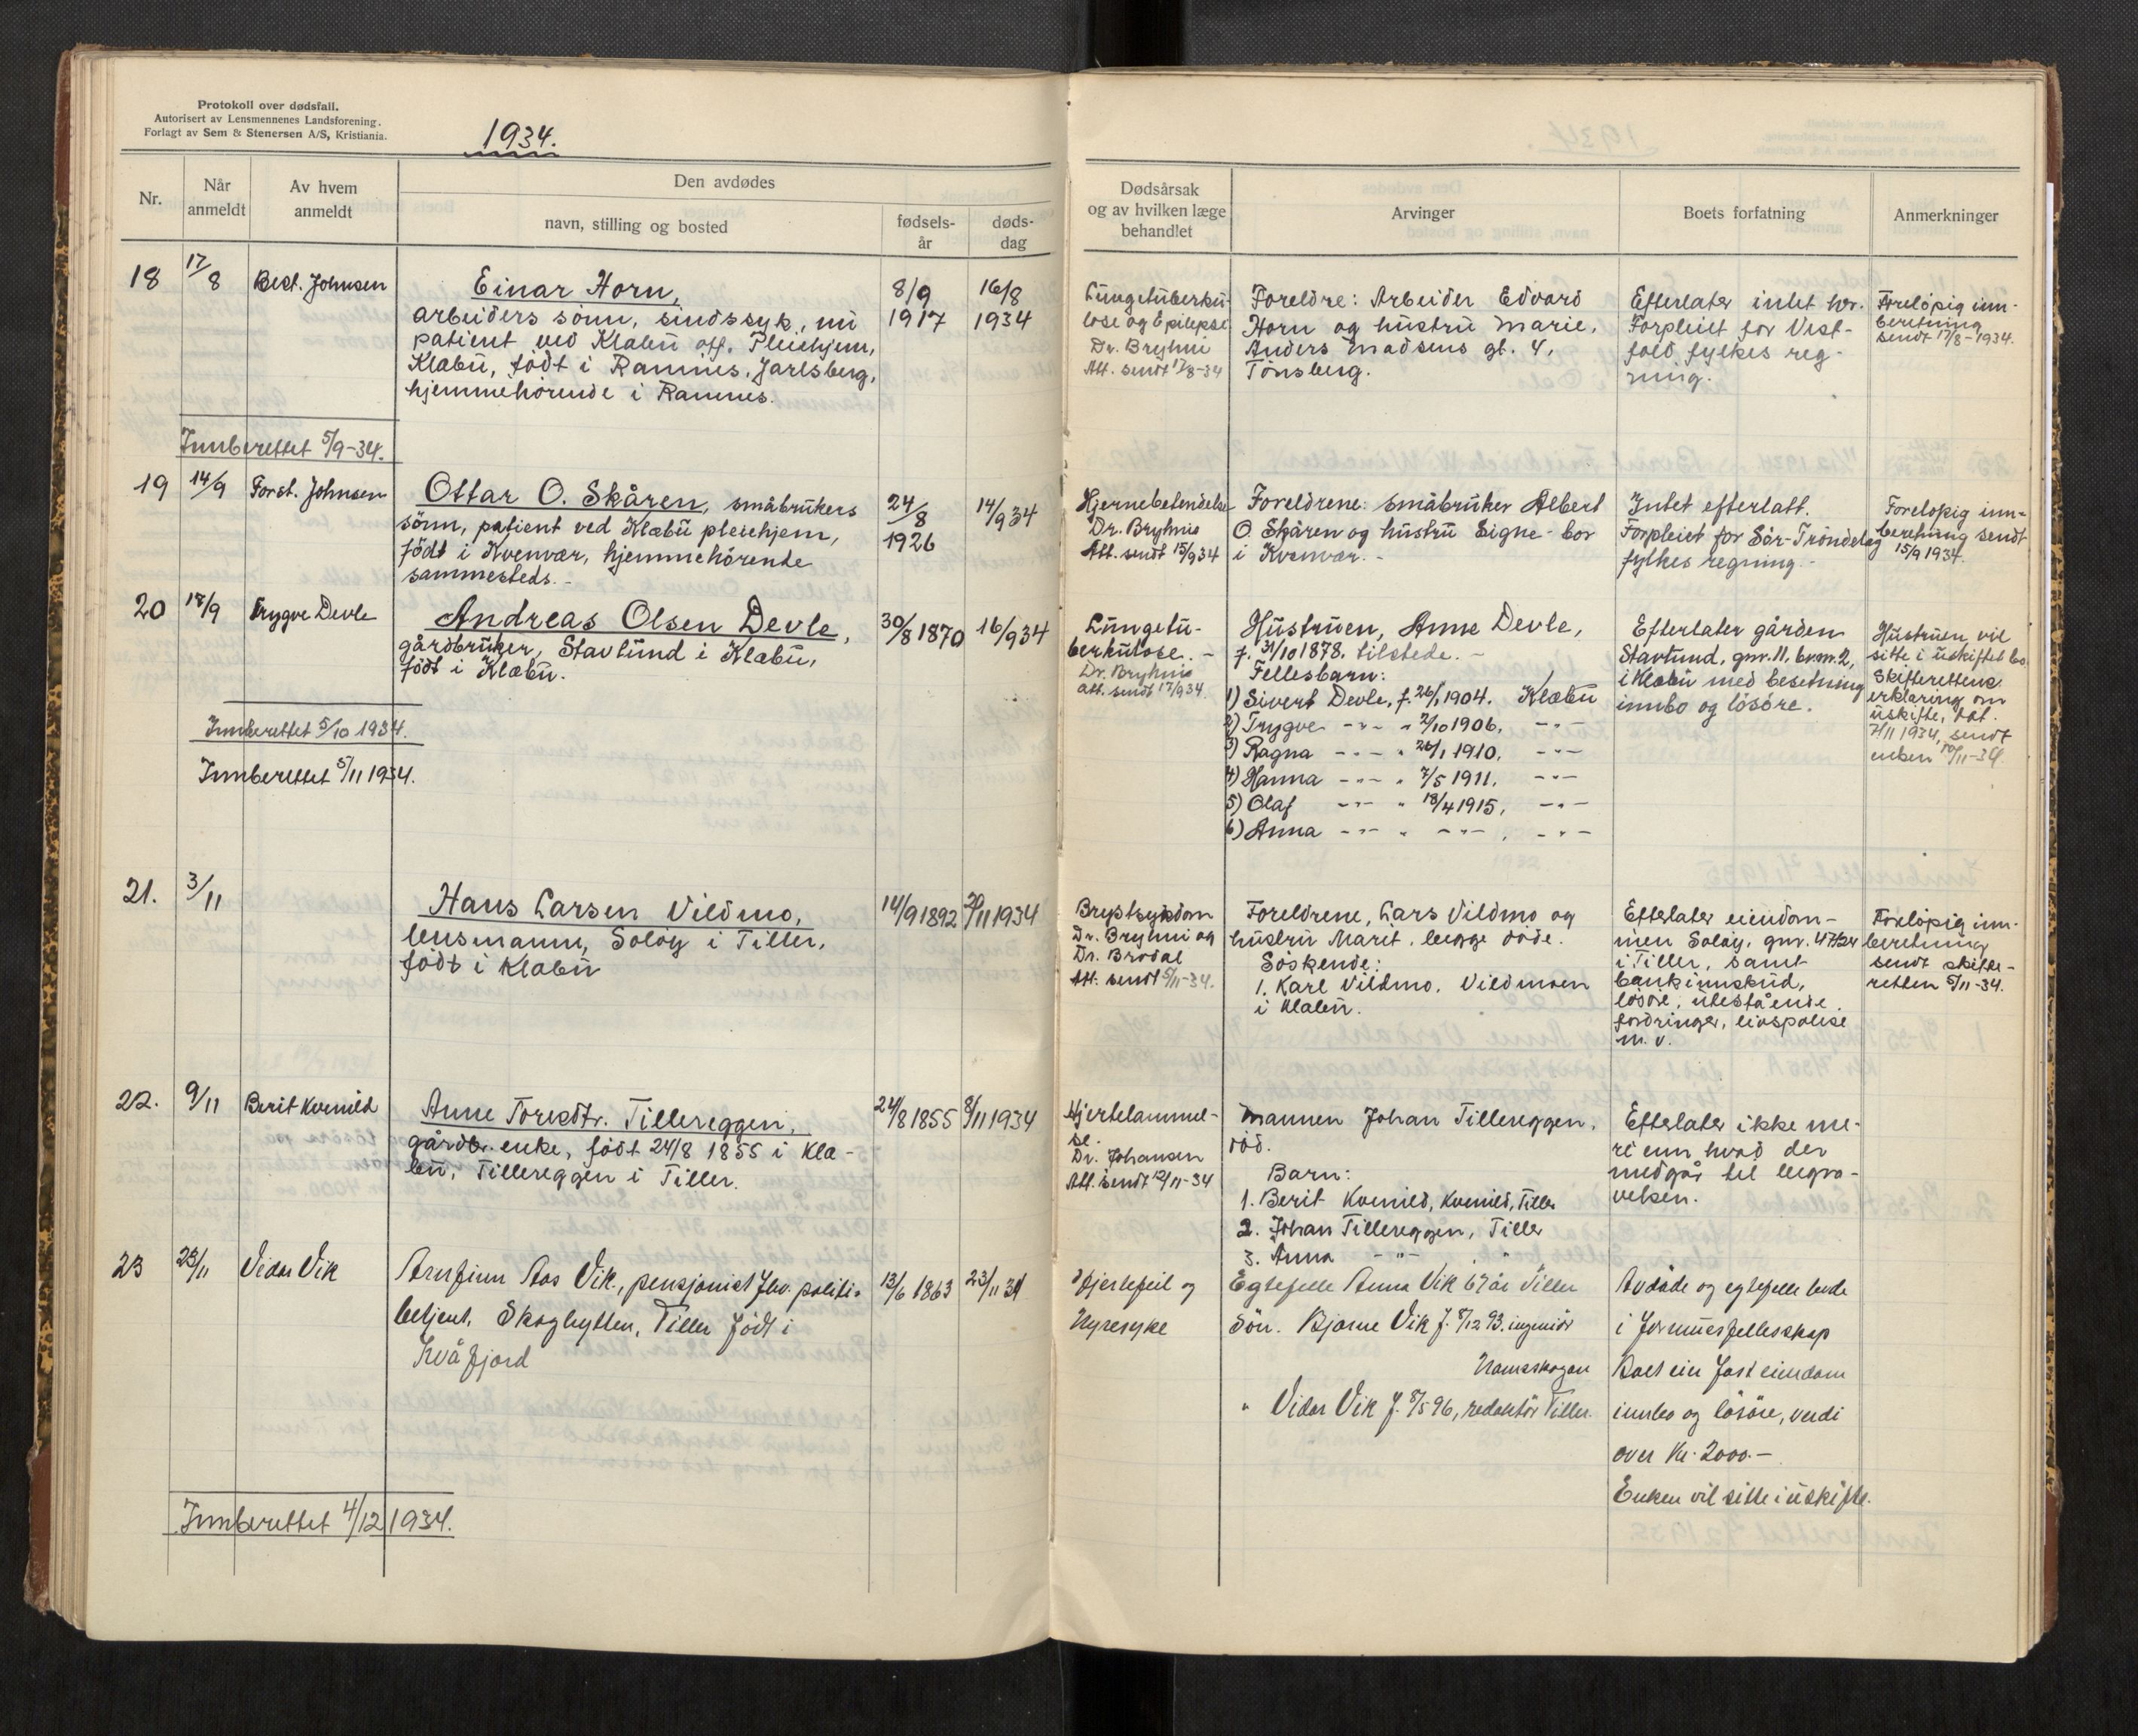 Protokoll over dødsfall.
Autorisert av Lensmennenes Landsforening.
Forlagt av Sem & Stenersen A/S, Kristiania.
1934.
Nr.
Når anmeldt
Av hvem anmeldt
Den avdødes
navn, stilling og bosted
fødsels-år
døds-dag
Dødsårsak
og av hvilken læge
behandlet
Arvinger
Boets forfatning
Anmerkninger
18
17/8
Best. Johnsen
Einar Horn,
arbeiders sønn, sindssyk, nu
patient ved Klæbu off. Pleiehjem,
Klæbu, født i Ramnes, Jarlsberg,
hjemmehörende i Ramnes.
8/9
1917
16/8
1934
Lungetuberku-
lose og Epilepse
Dr. Bryhni
Att. sendt 17/8-34
Foreldre: Arbeider Edvard
Horn og hustru Marie,
Anders Madsens gt. 4,
Tönsberg.
Efterlater intet her.
Forpleiet for Vest-
fold fylkes reg-
ning.
Foreløpig inn-
beretning
sendt 17/8-1934.
Innberettet 5/9-34.
19
14/9
Forst. Johnsen
Ottar O. Skåren, småbrukers
sönn, patient ved Klæbu pleiehjem,
födt i Kvenvær, hjemmehörende
sammesteds.-
24/8
1926
14/9 34
Hjernebetendelse
Dr. Bryhni
Att. sendt 15/9 34
Foreldrene: småbruker Albert
O. Skåren og hustru Signe - bor
i Kvenvær.-
Intet efterlatt.
Forpleiet for Sör-Tröndelag
fylkes regning.-
Forelöpig inn-
beretning sendt
15/9 1934.
20
18/9
Trygve Devle
Andreas Olsen Devle,
gårdbruker, Stavlund i Klæbu,
födt i Klæbu.
30/8 1870
16/9 34
Lungetu-
berkulose.-
Dr. Bryhni
att. sendt 17/9 34.
Hustruen, Anne Devle,
f. 31/10 1878. tilstede.-
Fellesbarn:
1) Sivert Devle, f. 26/1 1904. Klæbu
2) Trygve -"- " 2/10 1906, -"-
3) Ragna -"- " 26/1 1910, -"-
4) Hanna -"- " 7/5 1911, -"-
5) Olaf -"- " 18/4 1915, -"-
6) Anna -"- " -"-, -"-
Efterlater gården
Stavlund, gnr. 11, br.nr. 2,
i Klæbu med besetning
innbo og lösöre.
Hustruen vil
sitte i uskiftet bo.
Skifterettens
erklæring om
uskifte, dat.
7/11 1934, sendt
enken 10/11-34.
Innberettet 5/10 1934.
Innberettet 5/11 1934.
21.
3/11
Hans Larsen Vildmo,
lensmann, Soløy i Tiller,
födt i Klæbu
14/9 1892
/11 1934
Brystsykdom
Dr. Bryhni og
Dr. Brodal
Att. sendt 5/11-34.
Foreldrene, Lars Vildmo og
hustru Marit, begge döde.
Söskende:
1. Karl Vildmo, Vildmoen
i Klæbu.
Efterlater eiendom-
men Soløy, gnr. 47/24
i Tiller, samt
bankinnskud,
lösöre, utestående
fordringer, livspolise
m. v.
Forelöpig inn-
beretning
sendt skifte-
retten 5/11-34.
22.
9/11
Berit Kvenild
Anne Toresdtr. Tillereggen,
gårdbr. enke, födt 24/8 1855 i Klæ-
bu, Tillereggen i Tiller.
24/8 1855
8/11 1934
Hjertelammel-
se.
Dr. Johansen
Att. sendt 12/11-34
Mannen Johan Tillereggen,
död.
Barn:
1. Berit Kvenild, Kvenild, Tiller
2. Johan Tillereggen, Tiller
3. Anna -"- "
Efterlater ikke me-
re enn hvad der
medgår til begra-
velsen.
23
23/11
Vidar Vik
Arnfinn Aas Vik, pensjonist fhv. politi-
betjent, Skoghytten, Tiller født i
Kvæfjord
13/6 1863
23/11 34
Hjertefeil og
Nyresyke
Egtefelle Anna Vik 67 år Tiller
Sön. Bjarne Vik f. 8/12 93. ingeniör
Namsskogan
" Vidar Vik f. 8/5 96, redaktör Tiller.
Avdøde og egtefelle levde
i formuesfellesskap
Boet eier fast eiendom
innbo og lösöre, verdi
over kr. 2000.-
Enken vil sitte i uskifte.
Innberettet 4/12 1934.